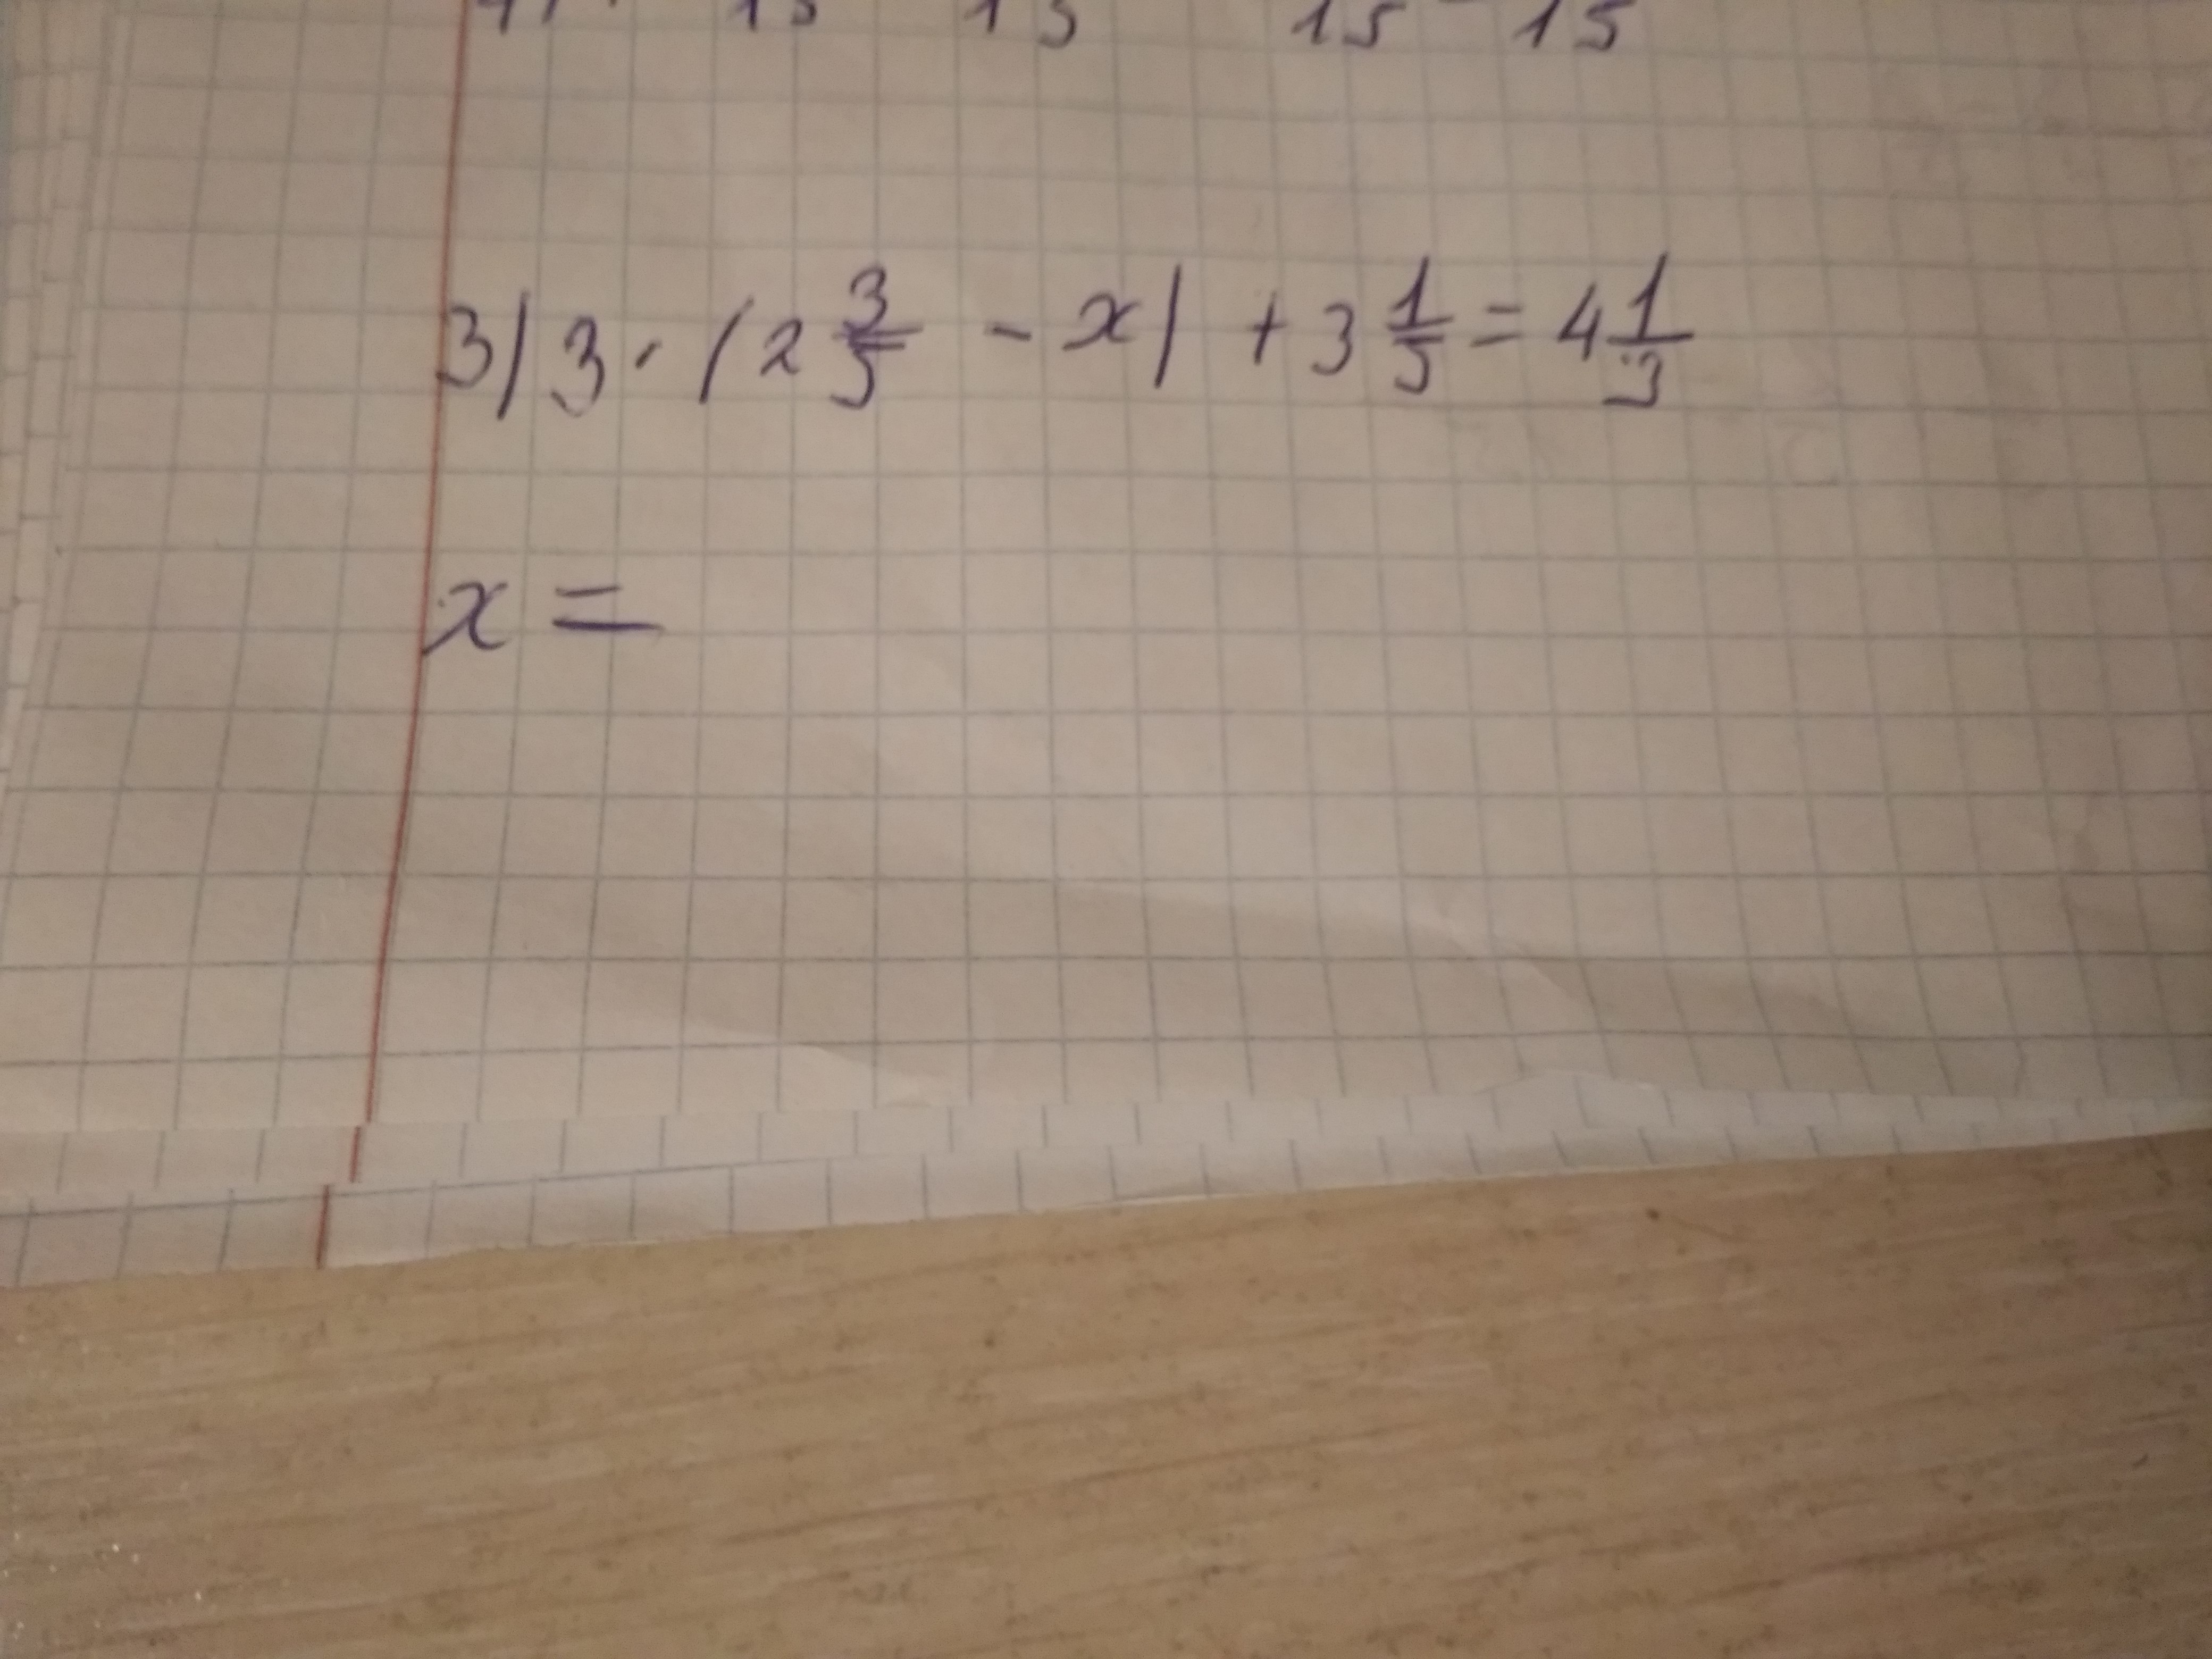 15 15
3) 3 · (2 3/5 - x) + 3 1/5 = 4 1/3
x =